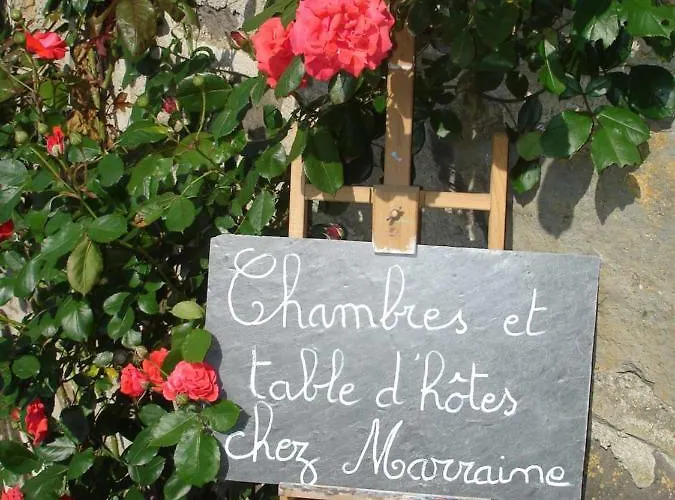 Chambres et
table d'hôtes
chez Marraine